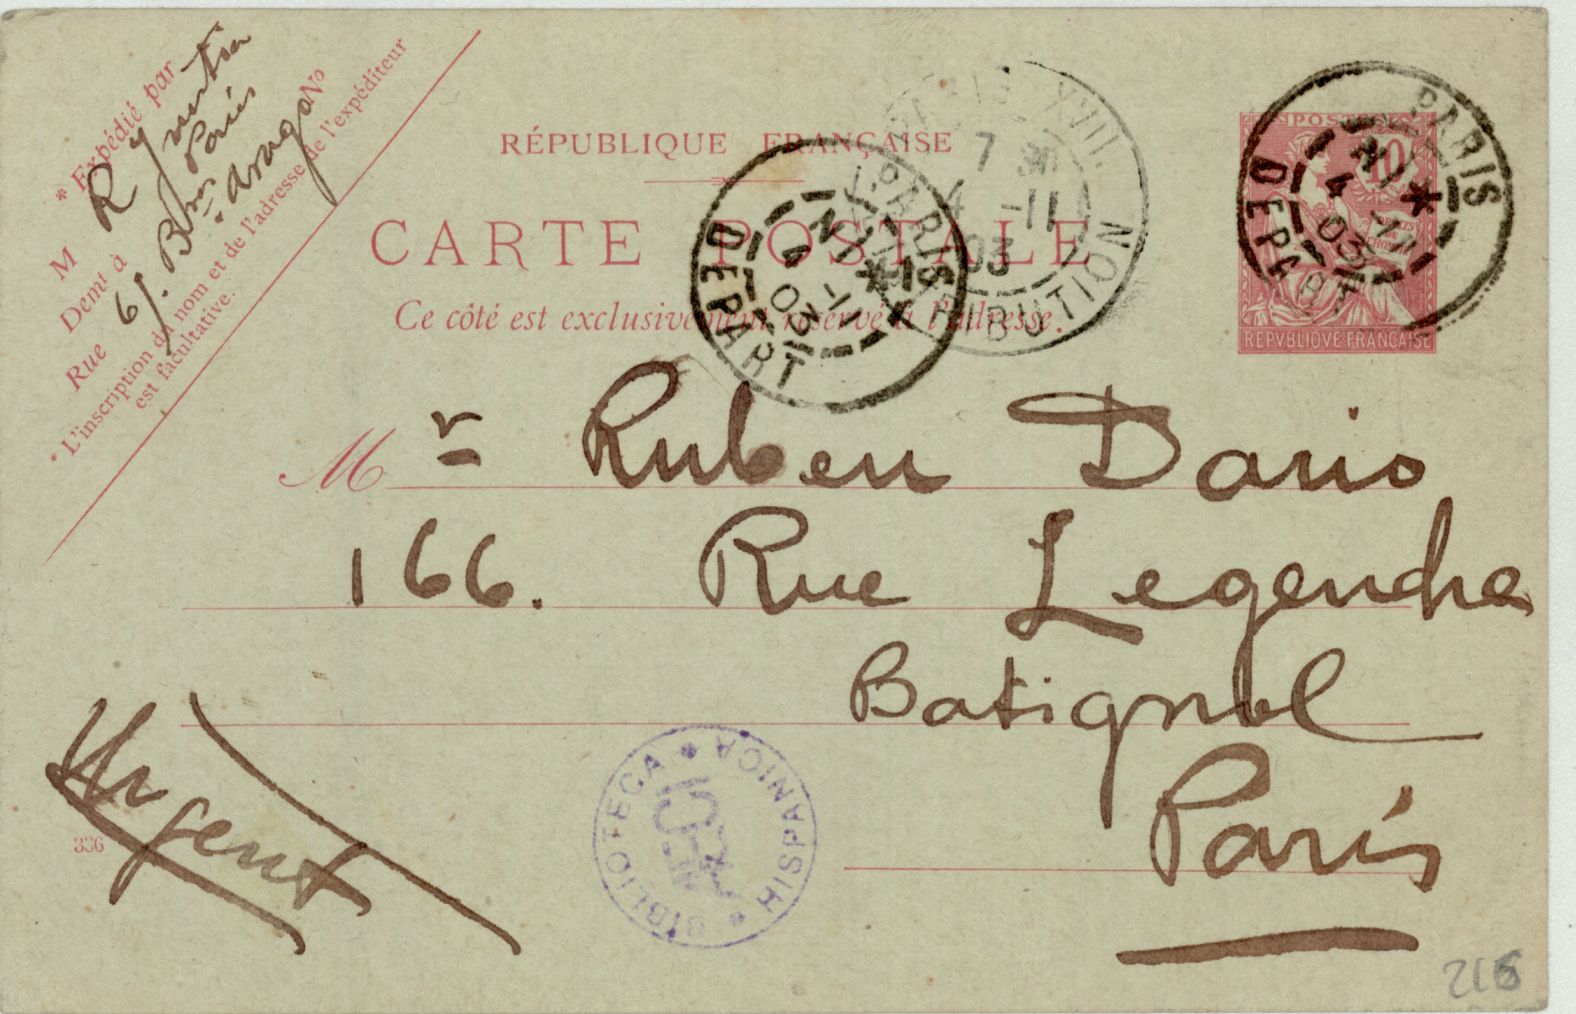 * Expédié par
M R
Demt à Paris
Rue 61. Bd Arago No
* L'inscription du nom et de l'adresse de l'expéditeur
est facultative.
RÉPUBLIQUE FRANÇAISE
CARTE POSTALE
Ce côté est exclusivement réservé à l'adresse.
PARIS
DEPART
4 -11
03
PARIS XVII.
7
4 -11
03
DISTRIBUTION
POSTES
10
REPVBLIQVE FRANÇAISE
PARIS
DEPART
4
03
Mr Ruben Dario
166. Rue Legendre
Batignol
Paris
Urgent
336
BIBLIOTECA * HISPANICA *
216